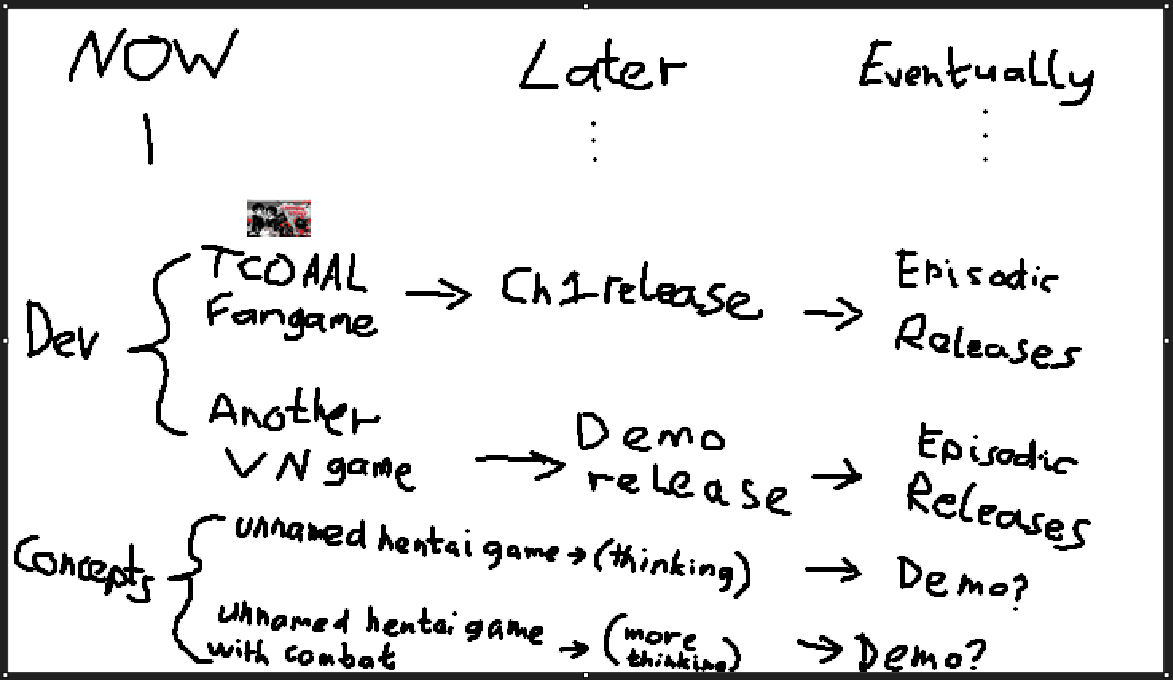 NOW
Later
Eventually
Dev
TCOAAL
Fangame
Ch1 release
Episodic
Releases
Another
VN game
Demo
release
Episodic
Releases
Concepts
unnamed hentai game
(thinking)
Demo?
unnamed hentai game
with combat
(more
thinking)
Demo?